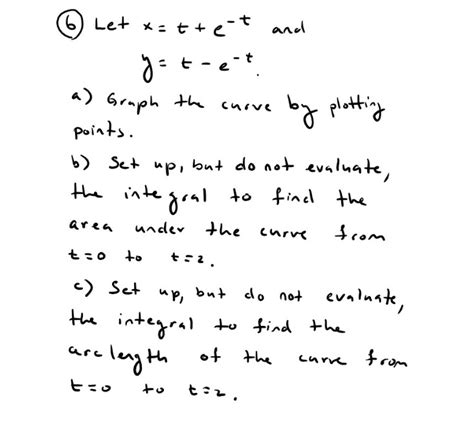 ⑥ Let x = t + e^-t and
y = t - e^-t.
a) Graph the curve by plotting
points.
b) Set up, but do not evaluate,
the integral to find the
area under the curve from
t=0 to t=2.
c) Set up, but do not evaluate,
the integral to find the
arc length of the curve from
t=0 to t=2.